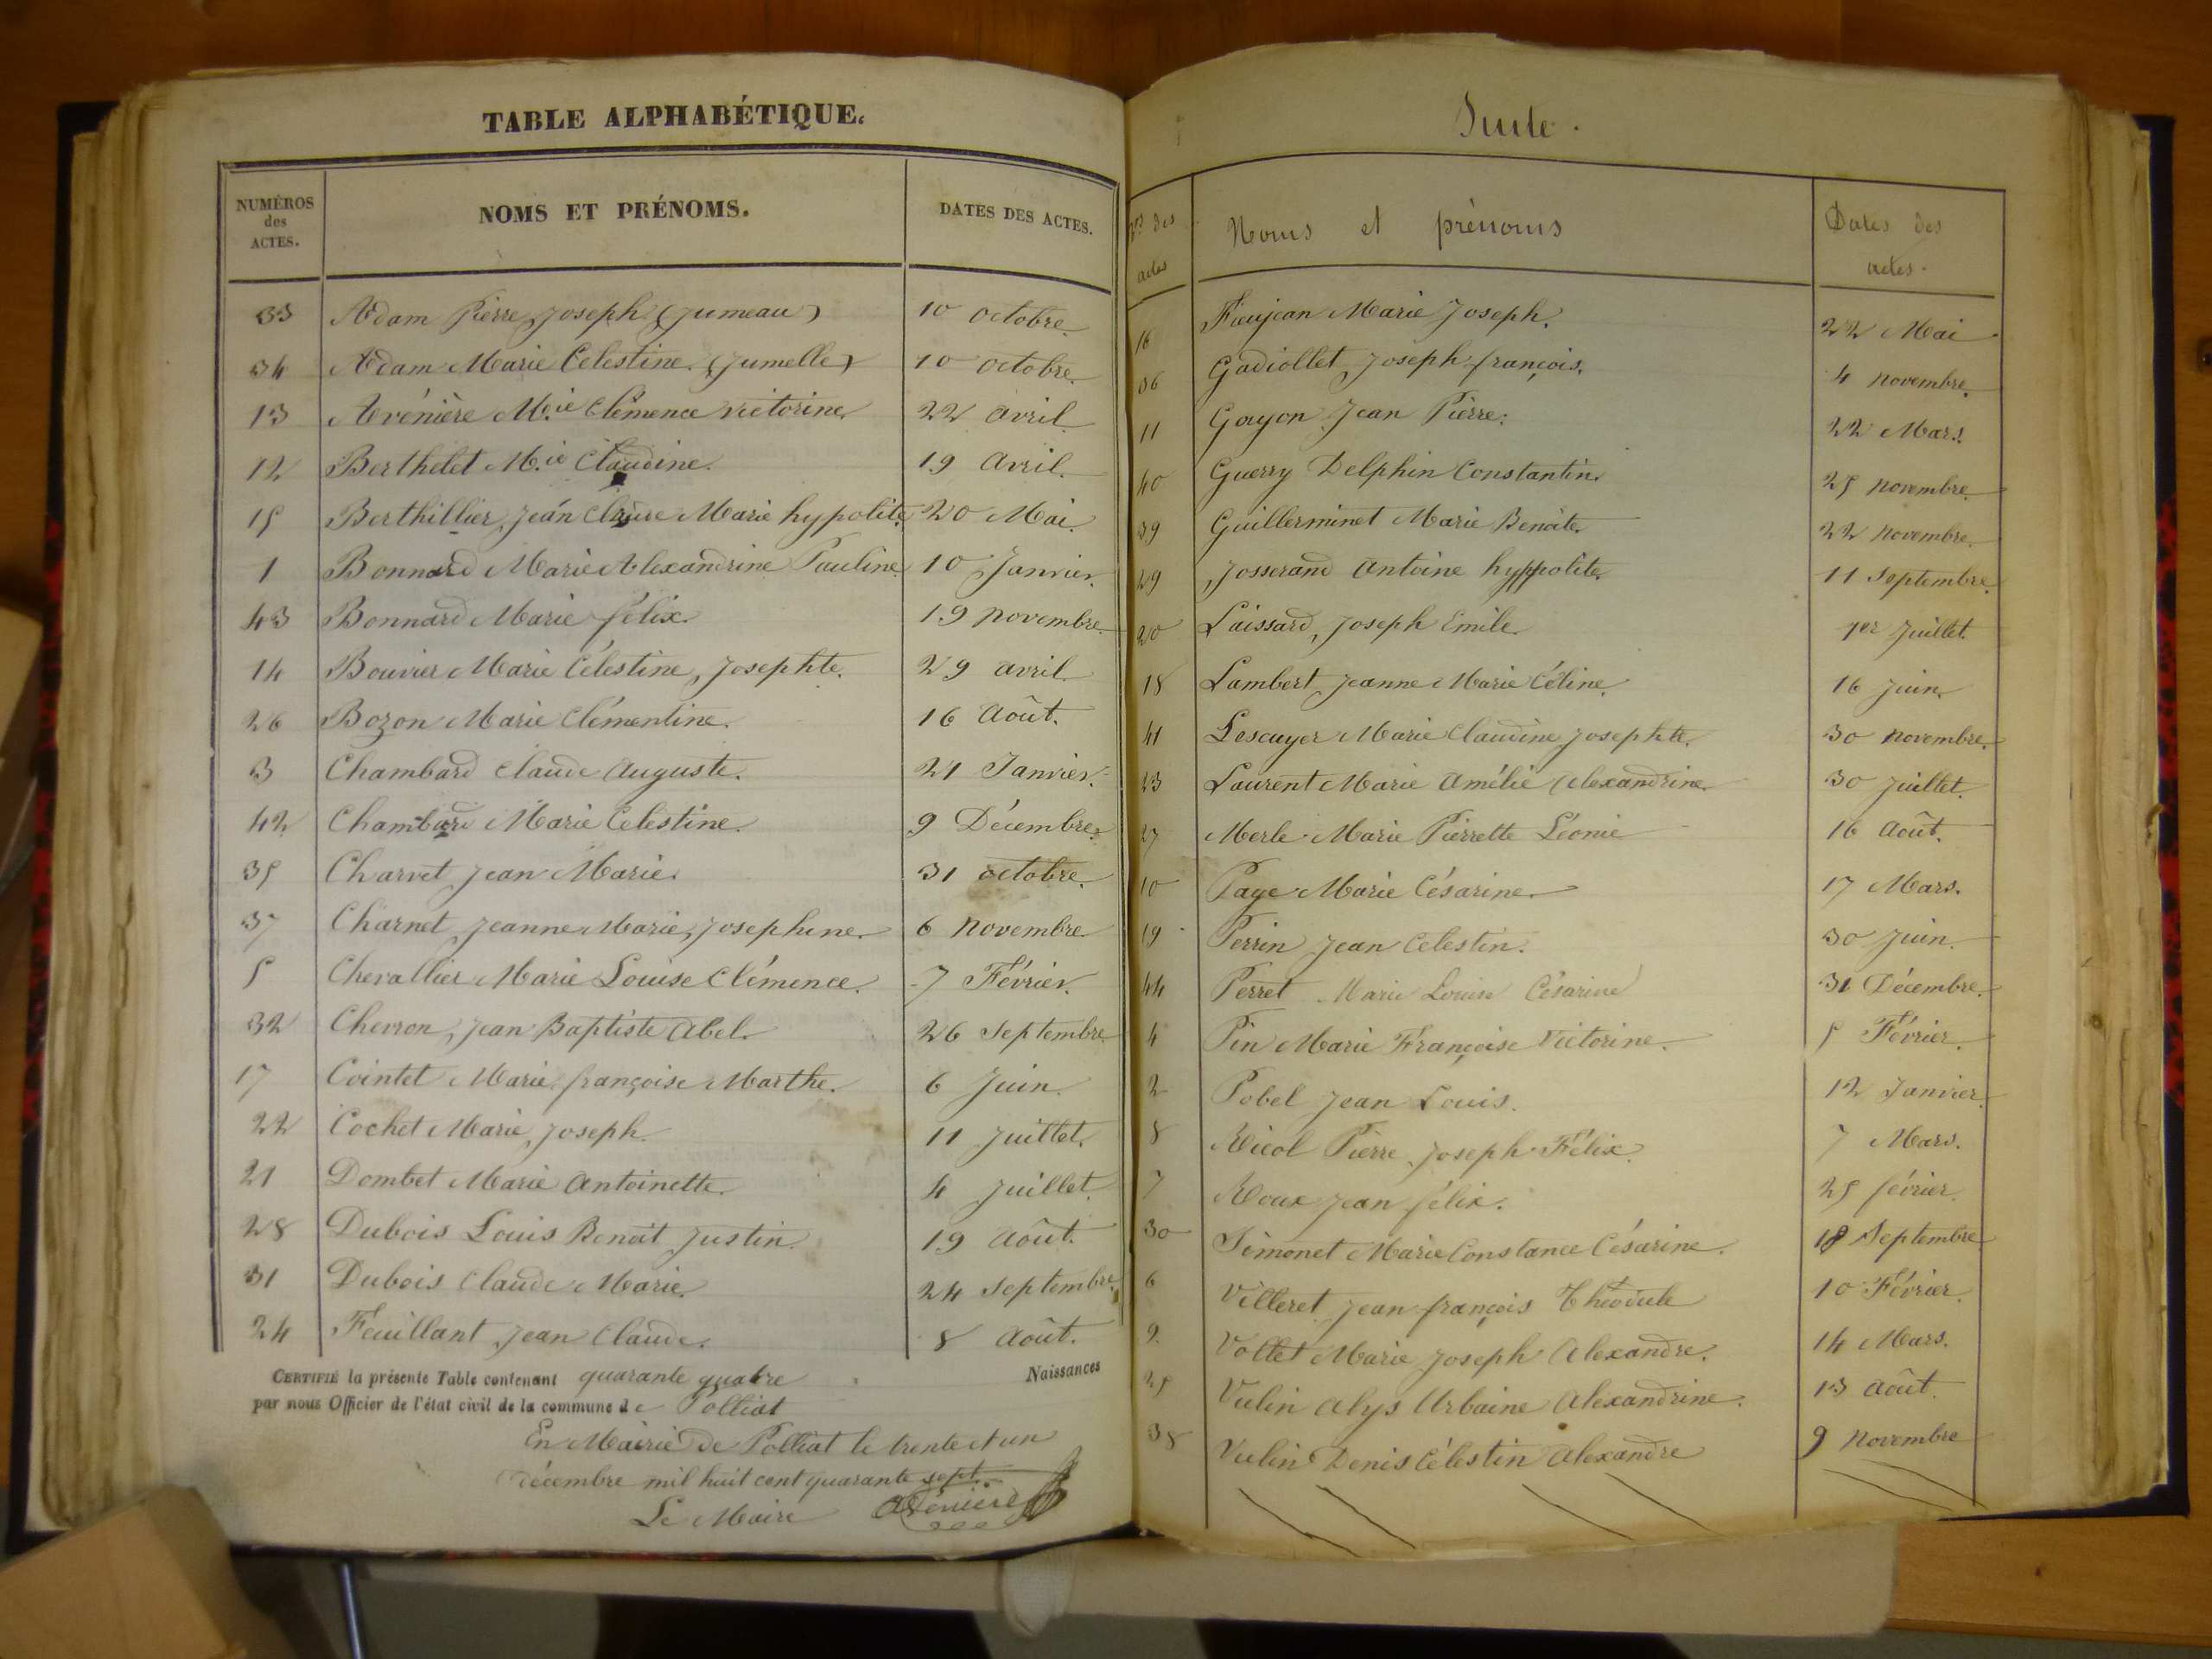 TABLE ALPHABÉTIQUE.
NUMÉROS des ACTES. NOMS ET PRÉNOMS. DATES DES ACTES.
33 Adam Pierre Joseph (Jumeau) 10 octobre.
34 Adam Marie Celestine (Jumelle) 10 octobre.
13 Avénière M.ie Clémence victorine 22 avril
12 Berthelet M.ie Claudine. 19 avril.
15 Berthillier, Jean Claude Marie hypolite, 20 Mai.
1 Bonnard Marie Alexandrine Pauline 10 Janvier.
43 Bonnard Marie félix. 19 novembre.
14 Bouvier Marie Célestine, Josephte. 29 avril.
26 Bozon Marie Clémentine. 16 Août.
3 Chambard Claude Auguste. 21 Janvier.
42 Chambard Marie Celestine. 9 Décembre.
35 Charvet Jean Marie. 31 octobre.
37 Charnet Jeanne Marie, Josephine. 6 novembre.
5 Chevallier Marie Louise Clémence. 7 Février.
32 Chevron, Jean Baptiste Abel. 26 Septembre
17 Cointet Marie françoise Marthe. 6 Juin.
22 Cochet Marie, Joseph. 11 Juillet.
21 Dombet Marie Antoinette. 4 Juillet.
28 Dubois Louis Benoit Justin. 19 Août.
31 Dubois Claude Marie. 24 Septembre.
24 Feuillant Jean Claude. 8 Août.
CERTIFIÉ la présente Table contenant quarante quatre Naissances
par nous Officier de l'état civil de la commune de Polliat
En Mairie de Polliat le trente et un
décembre mil huit cent quarante sept.
Le Maire Avénière
Suite.
Nos des actes Noms et prénoms Dates des actes.
16 Fieujean Marie Joseph. 22 Mai
36 Gadiollet, Joseph françois. 4 novembre.
11 Goyon Jean Pierre. 22 Mars.
40 Guerry Delphin Constantin. 25 novembre.
39 Guillerminet Marie Benoite. 22 novembre.
29 Josserand Antoine hyppolite. 11 Septembre.
20 Laissard, Joseph Emile. 1er Juillet.
18 Lambert Jeanne Marie Céline. 16 Juin.
41 Lescuyer Marie Claudine Josephte. 30 novembre.
23 Laurent Marie Amélie Alexandrine. 30 Juillet.
27 Merle Marie Pierrette Léonie 16 Août.
10 Page Marie Césarine. 17 Mars.
19 Perrin Jean Celestin. 30 Juin.
44 Perret Marie Louise Césarine 31 Décembre.
4 Pin Marie Françoise Victorine. 5 Février.
2 Pobel Jean Louis. 12 Janvier.
8 Nicol Pierre, Joseph Félix. 7 Mars.
7 Roux Jean félix. 25 février.
30 Simonet Marie Constance Césarine. 18 Septembre
6 Villeret Jean françois Théodule 10 Février.
9. Vollet Marie Joseph Alexandre. 14 Mars.
25 Vulin Alys Urbaine Alexandrine. 13 Août.
38 Vulin Denis Célestin Alexandre 9 novembre